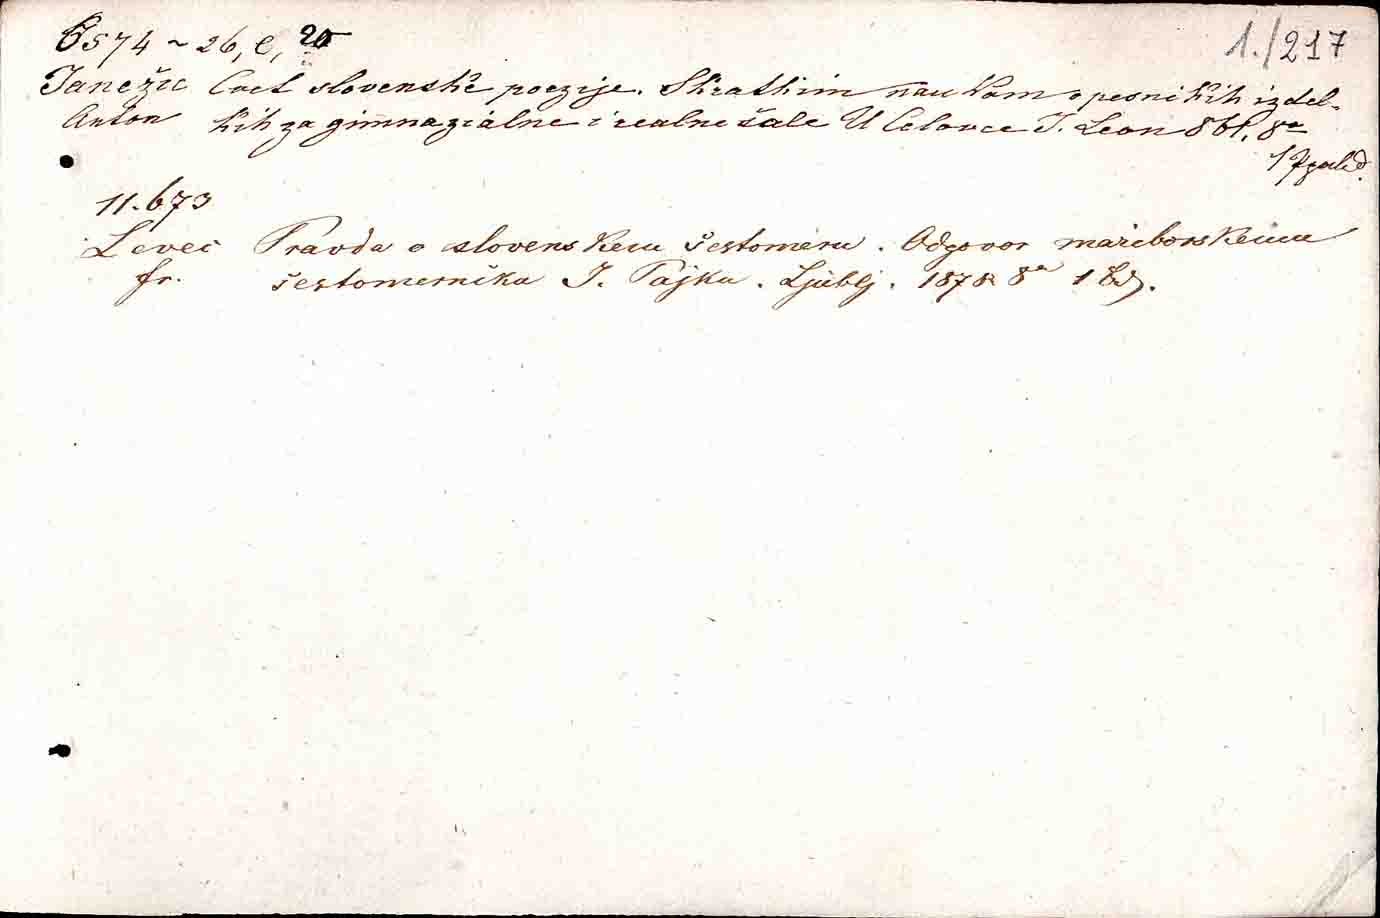 6574 ~ 26, e, 20
1./217
Janežic Cvet slovenskê poezije. S kratkim naukom o pesniških izdel-
Anton kih za gimnazialne i realne šale U Celovce J. Leon 861, 8º
1
11.673
Levec Pravda o slovenskem šestomeru. Odgovor mariborskemu
fr. šestomerniku J. Pajku. Ljublj. 1878 8º 1